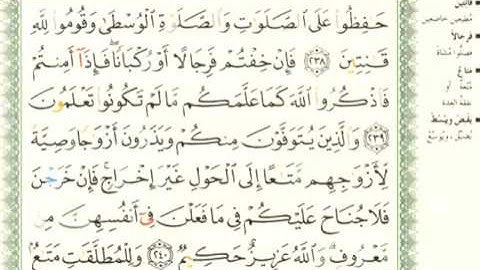 حَٰفِظُوا۟ عَلَى ٱلصَّلَوَٰتِ وَٱلصَّلَوٰةِ ٱلْوُسْطَىٰ وَقُومُوا۟ لِلَّهِ
قَٰنِتِينَ ٢٣٨ فَإِنْ خِفْتُمْ فَرِجَالًا أَوْ رُكْبَانًا فَإِذَآ أَمِنتُمْ
فَٱذْكُرُوا۟ ٱللَّهَ كَمَا عَلَّمَكُم مَّا لَمْ تَكُونُوا۟ تَعْلَمُونَ
٢٣٩ وَٱلَّذِينَ يُتَوَفَّوْنَ مِنكُمْ وَيَذَرُونَ أَزْوَٰجًا وَصِيَّةً
لِّأَزْوَٰجِهِم مَّتَٰعًا إِلَى ٱلْحَوْلِ غَيْرَ إِخْرَاجٍ فَإِنْ خَرَجْنَ
فَلَا جُنَاحَ عَلَيْكُمْ فِى مَا فَعَلْنَ فِىٓ أَنفُسِهِنَّ مِن
مَّعْرُوفٍ وَٱللَّهُ عَزِيزٌ حَكِيمٌ ٢٤٠ وَلِلْمُطَلَّقَٰتِ مَتَٰعٌۢ
قانتين
فرجالاً
متاع
يقبض ويبسط